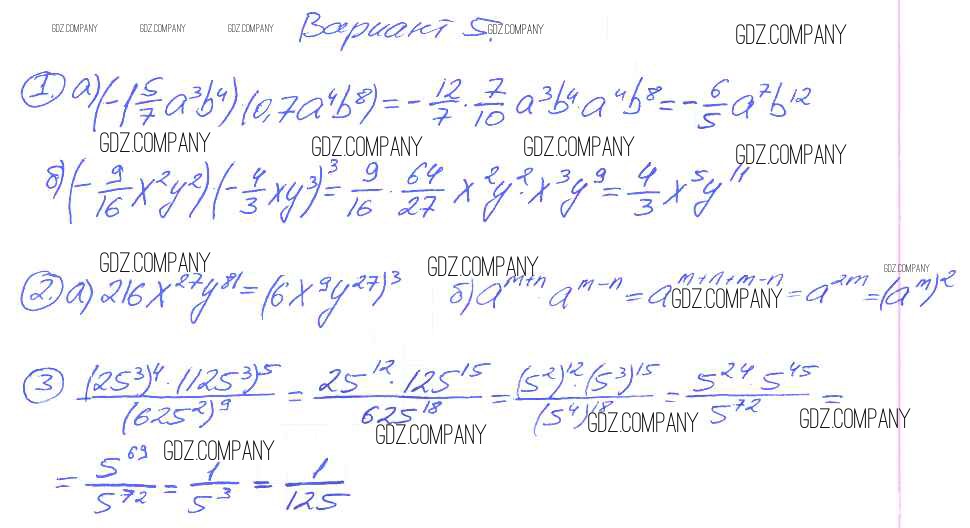 GDZ.COMPANY GDZ.COMPANY GDZ.COMPANY Вариант 5. GDZ.COMPANY GDZ.COMPANY
1. а) (-1 5/7 a³b⁴)·(0,7a⁴b⁸) = - 12/7 · 7/10 a³b⁴·a⁴b⁸ = - 6/5 a⁷b¹²
GDZ.COMPANY GDZ.COMPANY GDZ.COMPANY GDZ.COMPANY
б) (- 9/16 x²y²)·(- 4/3 xy³)³ = 9/16 · 64/27 x²y²·x³y⁹ = 4/3 x⁵y¹¹
GDZ.COMPANY GDZ.COMPANY GDZ.COMPANY
2. а) 216x²⁷y⁸¹ = (6x⁹y²⁷)³ б) a^(m+n) · a^(m-n) = a^(m+n+m-n) = a^(2m) = (a^m)²
GDZ.COMPANY
3 ((25³)⁴·(125³)⁵)/(625²)⁹ = (25¹²·125¹⁵)/625¹⁸ = ((5²)¹²·(5³)¹⁵)/(5⁴)¹⁸ = (5²⁴·5⁴⁵)/5⁷² =
GDZ.COMPANY GDZ.COMPANY GDZ.COMPANY GDZ.COMPANY
= 5⁶⁹/5⁷² = 1/5³ = 1/125